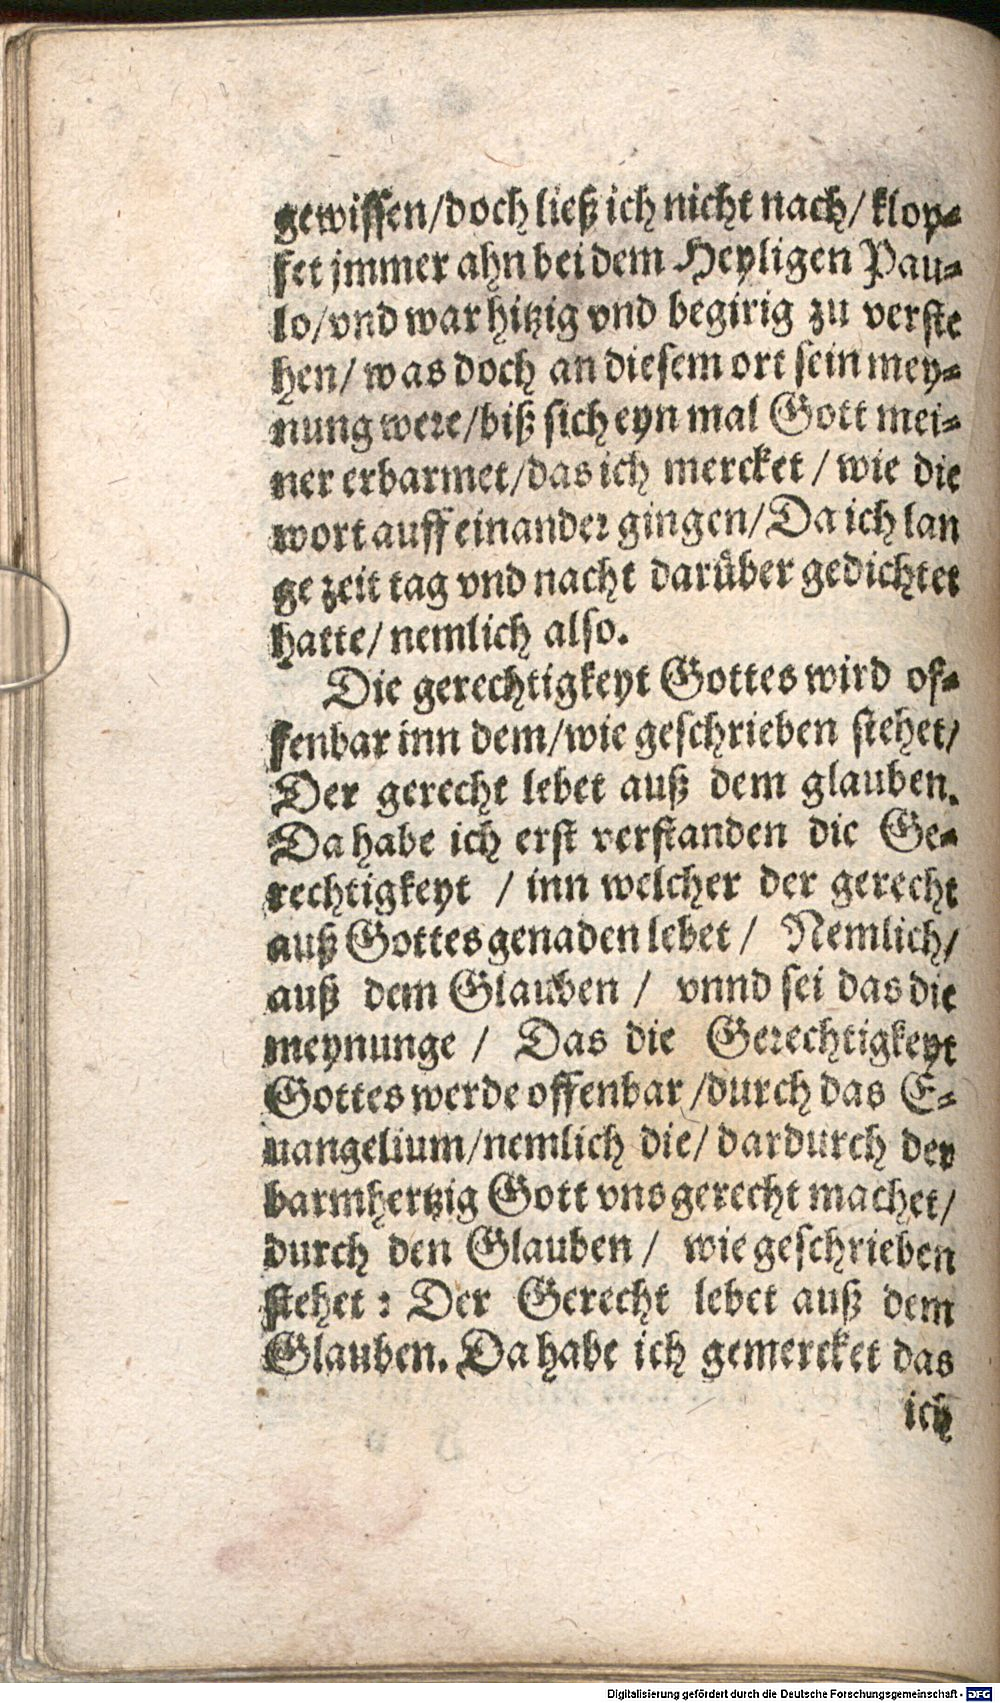 gewissen/doch ließ ich nicht nach/ klop-
fet jmmer ahn bei dem Heyligen Pau-
lo/vnd war hitzig vnd begirig zu verste
hen/ was doch an diesem ort sein mey-
nung were/biß sich eyn mal Gott mei-
ner erbarmet/das ich mercket / wie die
wort auff einander gingen/Da ich lan
ge zeit tag vnd nacht darüber gedichtet
hatte/ nemlich also.
Die gerechtigkeyt Gottes wird of-
fenbar inn dem/wie geschrieben stehet/
Der gerecht lebet auß dem glauben.
Da habe ich erst verstanden die Ge-
rechtigkeyt / inn welcher der gerecht
auß Gottes genaden lebet / Nemlich/
auß dem Glauben / vnnd sei das die
meynunge / Das die Gerechtigkeyt
Gottes werde offenbar /durch das E-
uangelium/nemlich die/ dardurch der
barmhertzig Gott vns gerecht machet/
durch den Glauben / wie geschrieben
stehet : Der Gerecht lebet auß dem
Glauben. Da habe ich gemercket das
ich
Digitalisierung gefördert durch die Deutsche Forschungsgemeinschaft - DFG